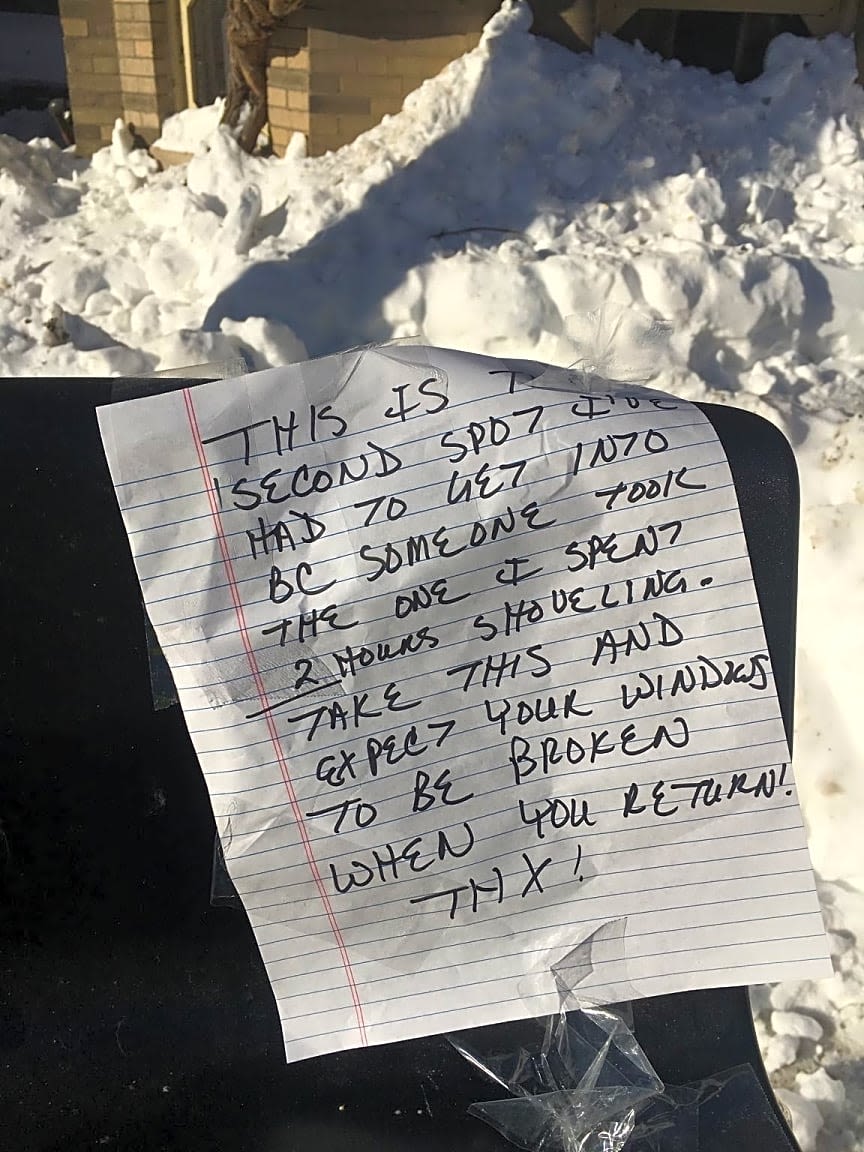 THIS IS
SECOND SPOT I'VE
HAD TO GET INTO
BC SOMEONE TOOK
THE ONE I SPENT
2 HOURS SHOVELING.
TAKE THIS AND
EXPECT YOUR WINDOWS
TO BE BROKEN
WHEN YOU RETURN!
THX!